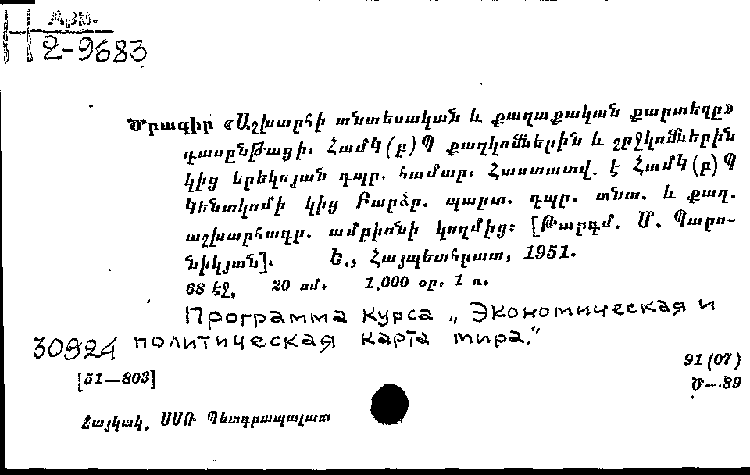 Арм.
2-9683
Ծրագիր «Աշխարհի տնտեսական և քաղաքական քարտեզը»
դասընթացի. Համկ(բ)Պ քաղկոմներին և շրջկոմներին
կից երեկոյան դպր. համար. Հաստատվ. է Համկ(բ)Պ
Կենտկոմի կից Բարձր. պարտ. դպր. տնտ. և քաղ.
աշխարհագր. ամբիոնի կողմից: [Թարգմ. Մ. Պարո-
նիկյան]. Ե., Հայպետհրատ, 1951.
68 էջ, 20 սմ. 1,000 օր. 1 ռ.
Программа курса „Экономическая и
30924 политическая карта мира."
91(07)
[51—803]
Ծ—89
Հայկակ. ՍՍՌ Պետգրապալատ